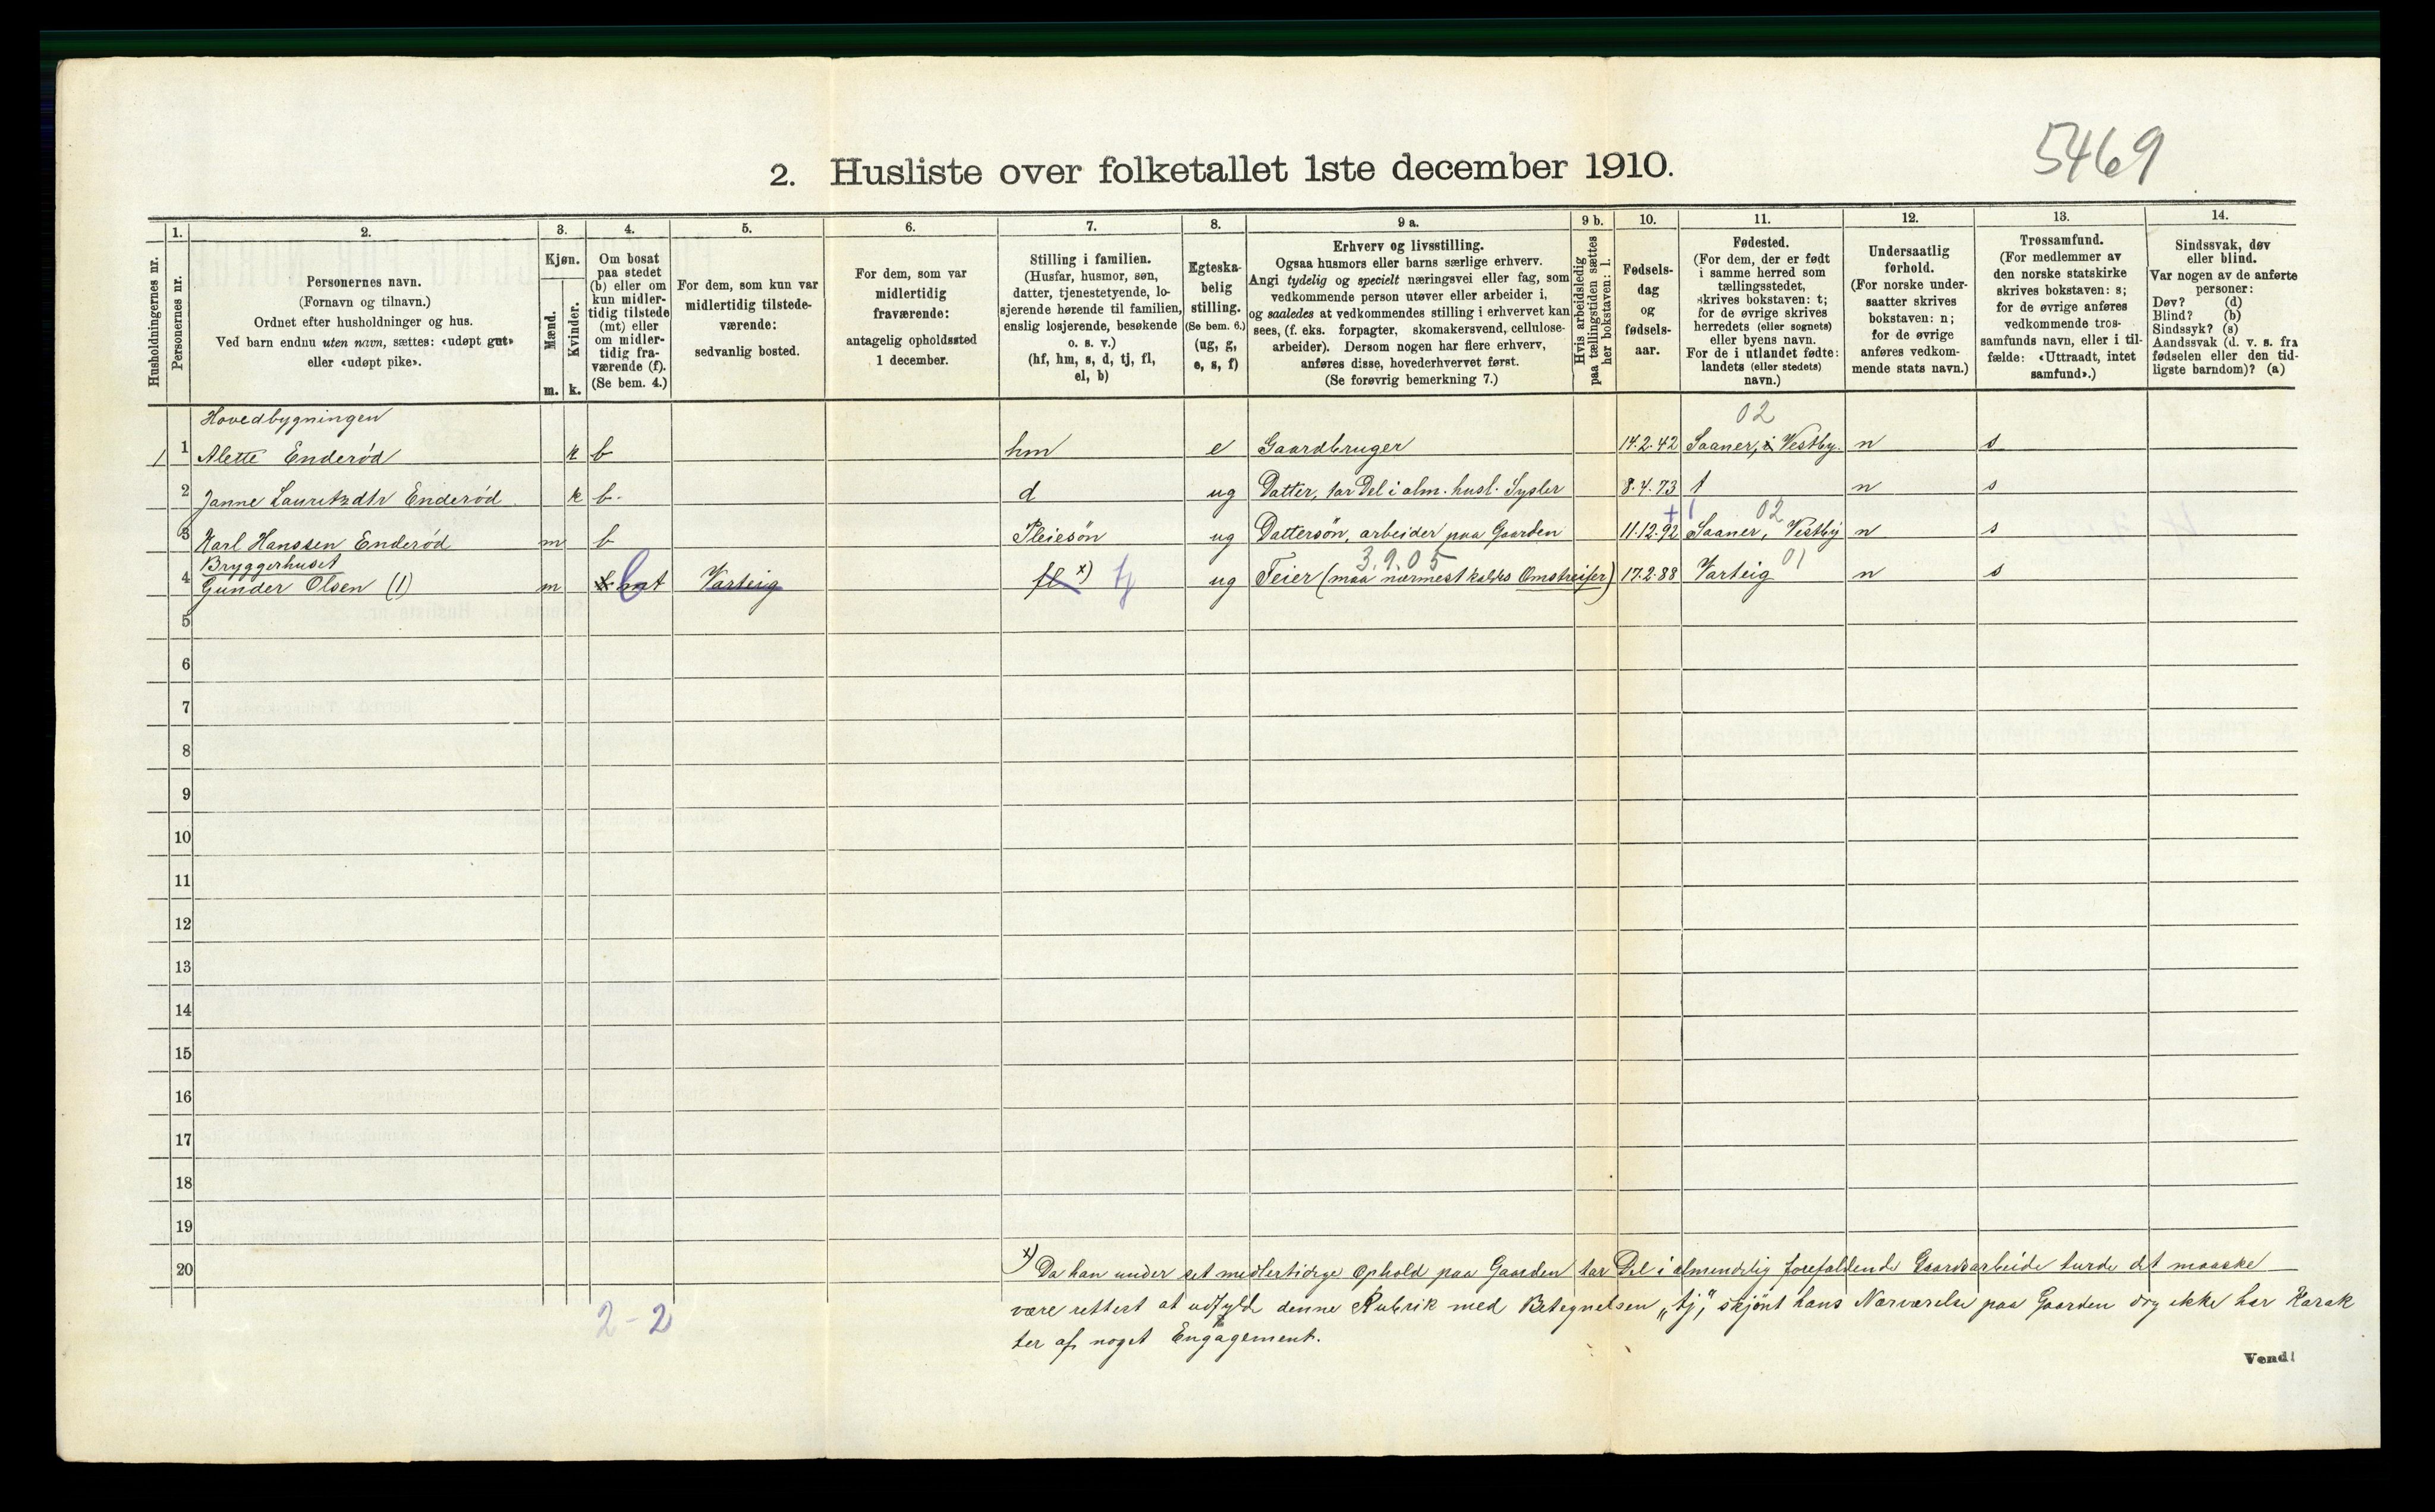 5469
2. Husliste over folketallet 1ste december 1910.
Husholdningernes nr.
1.
Personernes nr.
2.
Personernes navn.
(Fornavn og tilnavn.)
Ordnet efter husholdninger og hus.
Ved barn endnu uten navn, sættes: «udøpt gut»
eller «udøpt pike».
3.
Kjøn.
Mænd.
m.
Kvinder.
k.
4.
Om bosat
paa stedet
(b) eller om
kun midler-
tidig tilstede
(mt) eller
om midler-
tidig fra-
værende (f).
(Se bem. 4.)
5.
For dem, som kun var
midlertidig tilstede-
værende:
sedvanlig bosted.
6.
For dem, som var
midlertidig
fraværende:
antagelig opholdssted
1 december.
7.
Stilling i familien.
(Husfar, husmor, søn,
datter, tjenestetyende, lo-
sjerende hørende til familien,
enslig losjerende, besøkende
o. s. v.)
(hf, hm, s, d, tj, fl,
el, b)
8.
Egteska-
belig
stilling.
(Se bem. 6.)
(ug, g,
e, s, f)
9 a.
Erhverv og livsstilling.
Ogsaa husmors eller barns særlige erhverv.
Angi tydelig og specielt næringsvei eller fag, som
vedkommende person utøver eller arbeider i,
og saaledes at vedkommendes stilling i erhvervet kan
sees, (f. eks. forpagter, skomakersvend, cellulose-
arbeider). Dersom nogen har flere erhverv,
anføres disse, hovederhvervet først.
(Se forøvrig bemerkning 7.)
9 b.
Hvis arbeidsledig
paa tællingstiden sættes
her bokstaven: l.
10.
Fødsels-
dag
og
fødsels-
aar.
11.
Fødested.
(For dem, der er født
i samme herred som
tællingsstedet,
skrives bokstaven: t;
for de øvrige skrives
herredets (eller sognets)
eller byens navn.
For de i utlandet fødte:
landets (eller stedets)
navn.)
12.
Undersaatlig
forhold.
(For norske under-
saatter skrives
bokstaven: n;
for de øvrige
anføres vedkom-
mende stats navn.)
13.
Trossamfund.
(For medlemmer av
den norske statskirke
skrives bokstaven: s;
for de øvrige anføres
vedkommende tros-
samfunds navn, eller i til-
fælde: «Uttraadt, intet
samfund».)
14.
Sindssvak, døv
eller blind.
Var nogen av de anførte
personer:
Døv? (d)
Blind? (b)
Sindssyk? (s)
Aandssvak (d. v. s. fra
fødselen eller den tid-
ligste barndom)? (a)
Hovedbygningen 02
1 1 Alette Enderød k b hm e Gaardbruger 14.2.42 Saaner, i Vestby. n s
2 Janne Lauritzdtr Enderød k b. d ug Datter, tar Del i alm. husl. Sysler 8.4.73 t n s
02
3 Karl Hanssen Enderød m b Pleiesøn ug Dattersøn, arbeider paa Gaarden 11.12.92 Saaner, Vestby n s
Bryggerhuset 3.9.05 01
4 Gunder Olsen (1) m mt b Varteig fl x) tj ug Feier (maa nærmest kaldes Omstreifer) 17.2.88 Varteig n s
5
6
7
8
9
10
11
12
13
14
15
16
17
18
19
20
x) Da han under sit midlertidige Ophold paa Gaarden tar Del i almendelig forefaldende Gaardsarbeide turde det maaske
være rettest at udfylde denne Rubrik med Betegnelsen „tj", skjønt hans Nærværelse paa Gaarden dog ikke har Karak
ter af noget Engagement.
2 - 2
Vend!